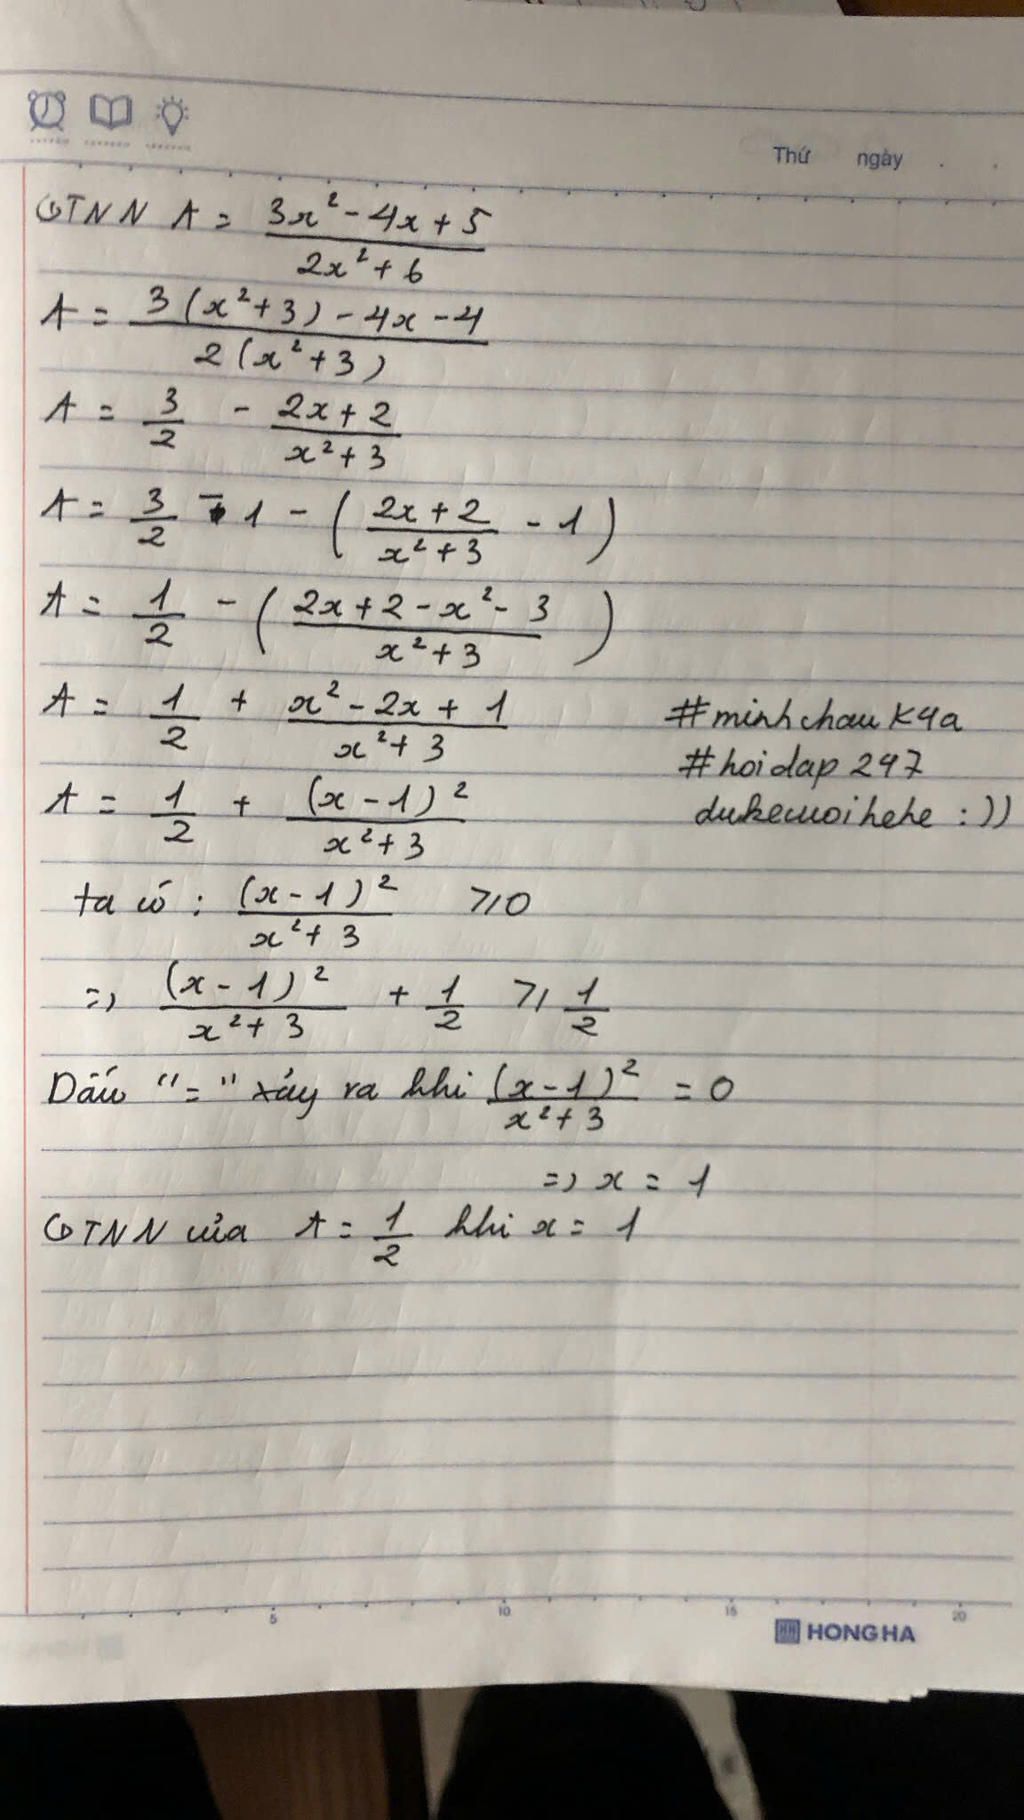 Thứ ngày
GTNN A = (3x² - 4x + 5)/(2x² + 6)
A = (3(x² + 3) - 4x - 4)/(2(x² + 3))
A = 3/2 - (2x + 2)/(x² + 3)
A = 3/2 - 1 - ((2x + 2)/(x² + 3) - 1)
A = 1/2 - ((2x + 2 - x² - 3)/(x² + 3))
A = 1/2 + (x² - 2x + 1)/(x² + 3)
#minhchauk4a
A = 1/2 + (x - 1)²/(x² + 3)
#hoidap247
dukewoihehe :))
ta có : (x - 1)²/(x² + 3) ≥ 0
=> (x - 1)²/(x² + 3) + 1/2 ≥ 1/2
Dấu "=" xảy ra khi (x - 1)²/(x² + 3) = 0
=> x = 1
GTNN của A = 1/2 khi x = 1
5 10 15 20
HONG HA